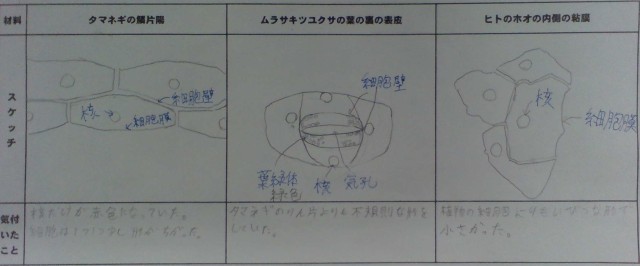 材料
タマネギの鱗片陽
ムラサキツユクサの葉の裏の表皮
ヒトのホオの内側の粘膜
スケッチ
核
細胞壁
細胞膜
細胞壁
葉緑体
緑色
核
気孔
核
細胞膜
気付いたこと
核だけが赤色になっていた。
細胞は1つ1つ
タマネギのりん片よりも不規則な形を
していた。
植物の細胞よりもいびつな形で
小さかった。